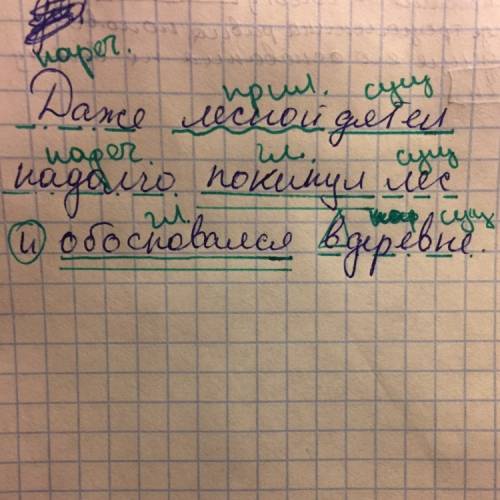 нареч.
прил. сущ
Даже лесной дятел
нареч. гл. сущ
надолго покинул лес
гл. сущ
и обосновался в деревне.